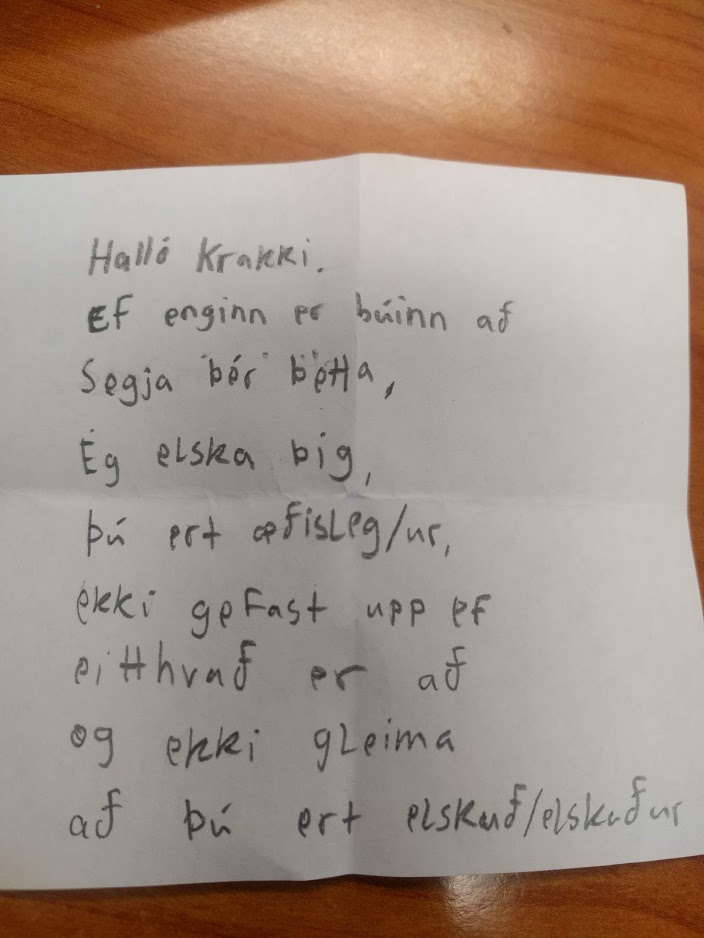 Halló Krakki.
Ef enginn er búinn að
Segja þér þetta,
Ég elska þig,
þú ert æfisleg/ur,
ekki gefast upp ef
eitthvað er að
og ekki gleima
að þú ert elskuð/elskaður